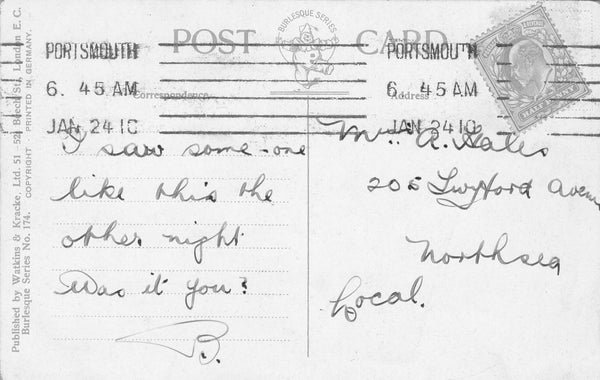 POST CARD
BURLESQUE SERIES
PORTSMOUTH
6. 45 AM
JAN 24 10
PORTSMOUTH
6. 45 AM
JAN 24 10
Correspondence
Address
I saw some-one
like this the
other night
Was it you?
B.
A. Gates
205 Twyford Avenue
Northsea
Local.
Published by Watkins & Kracke, Ltd. 51 - 52, Beech St., London E. C.
Burlesque Series No. 174. COPYRIGHT PRINTED IN GERMANY.